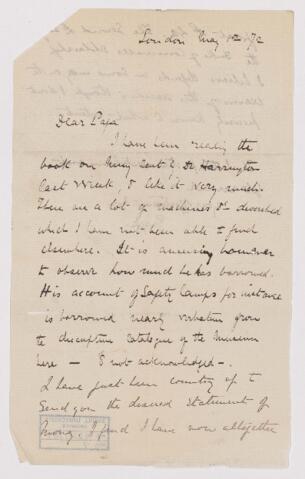 London May 12 72
Dear Papa
I have been reading the
book on Mining sent to Dr Harrington
last week, & like it very much.
There are a lot of machines &c described
which I have not been able to find
elsewhere. It is amusing however
to observe how much he has borrowed.
His account of Safety Lamps for instance
is borrowed nearly verbatim from
the descriptive Catalogue of the Museum
here — & not acknowledged —.
I have just been counting up to
send you the desired statement of
money. I find I have now altogether